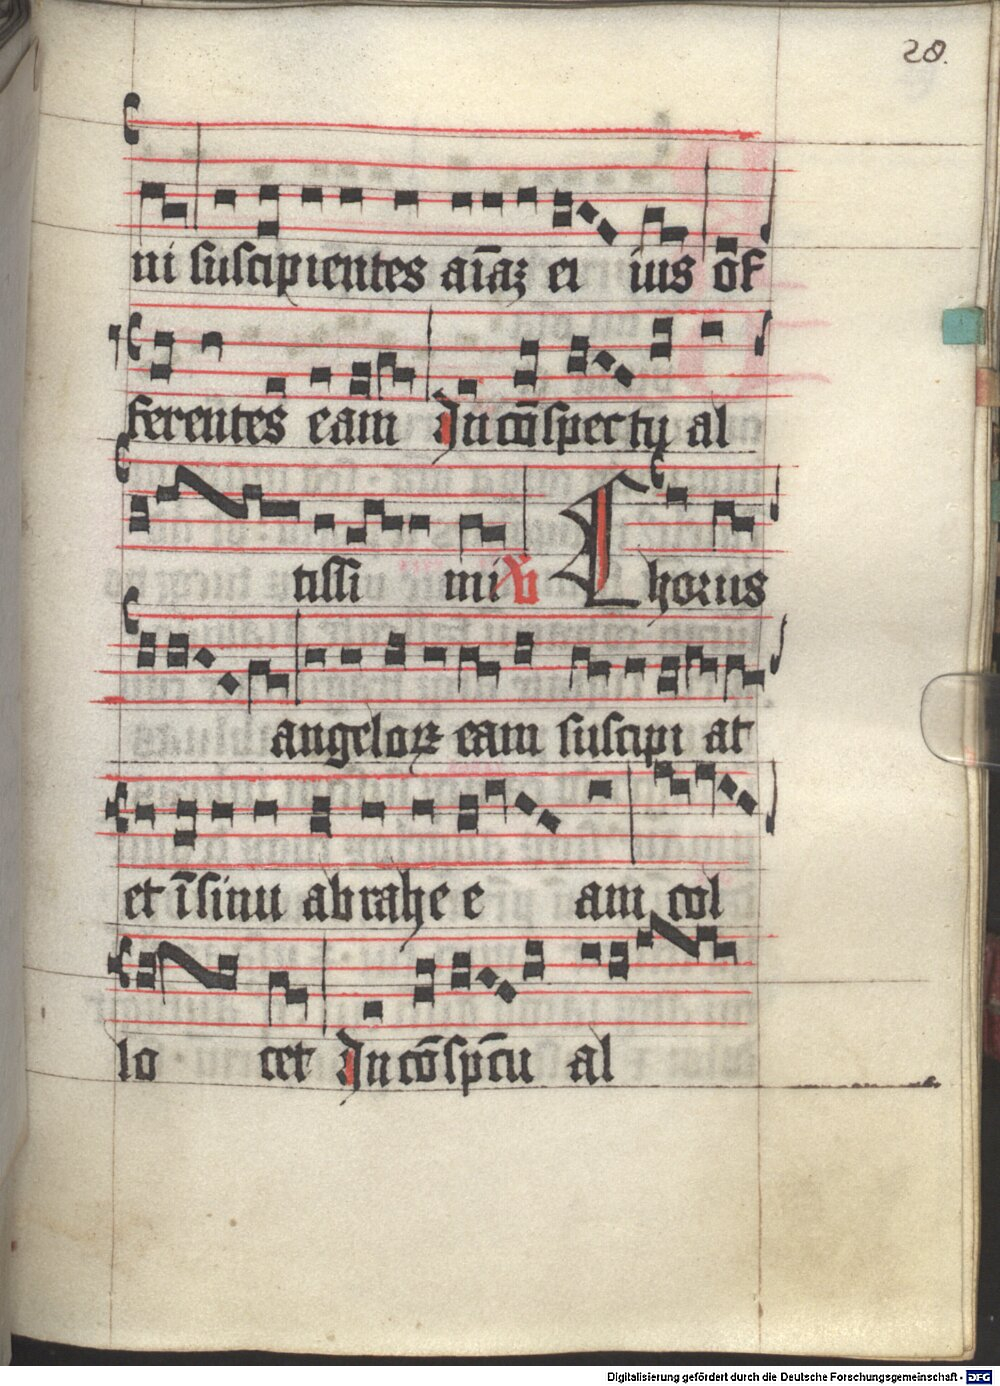 28.
ni suscipientes aīaꝫ ei ius of̄
ferentes eam In cōspectu al
tissi mi Xv Chorus
angeloꝝ eam suscipi at
et ī sinu abrahe e am col
lo cet In cōspc̄u al
Digitalisierung gefördert durch die Deutsche Forschungsgemeinschaft - DFG